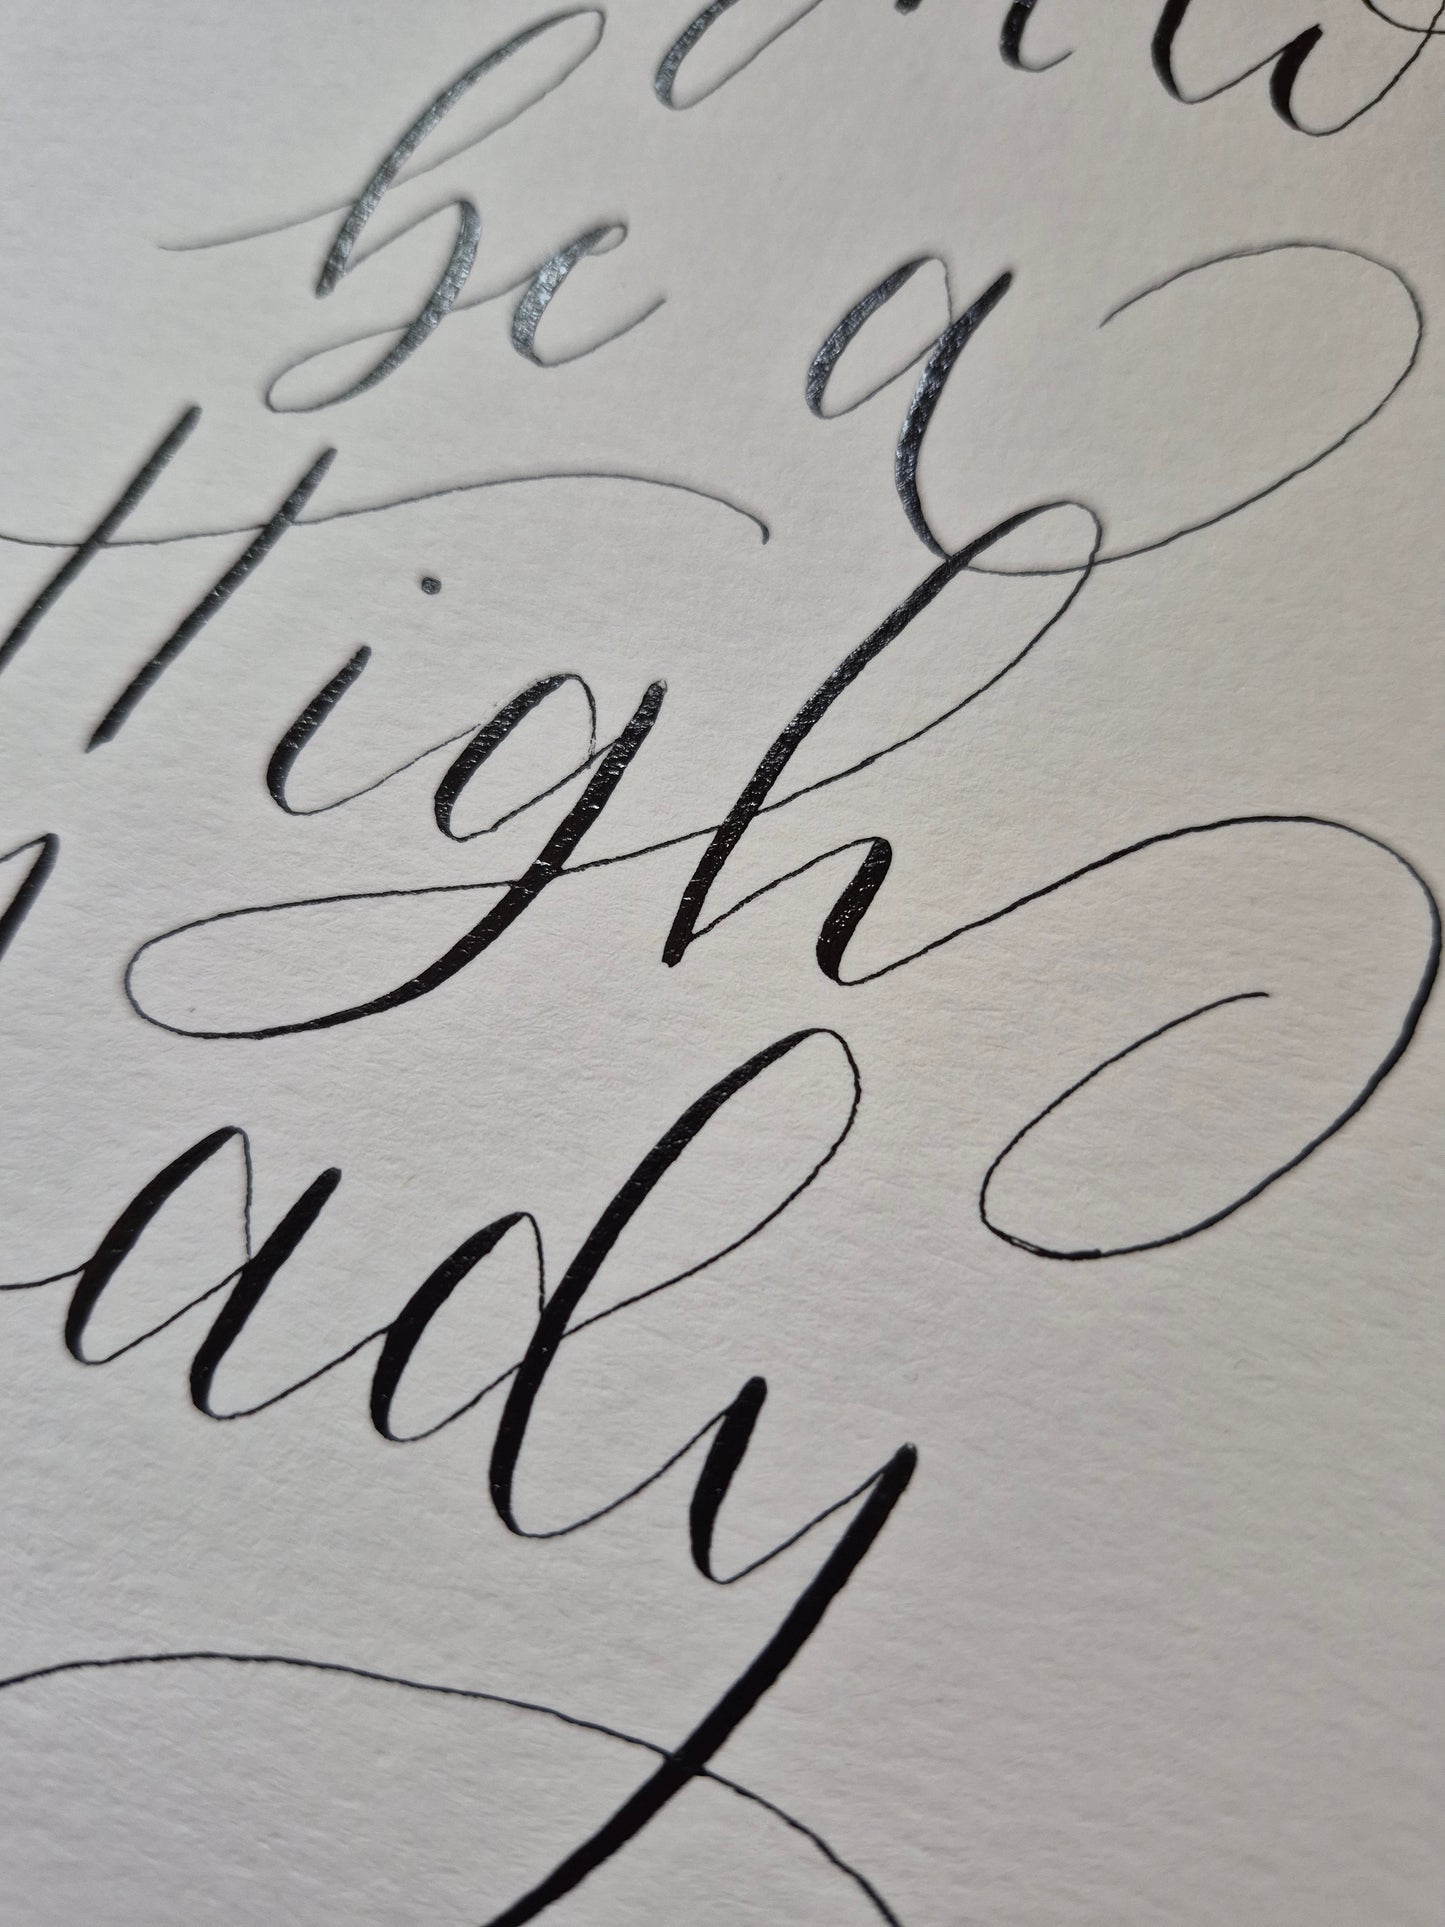 be a
High
ady